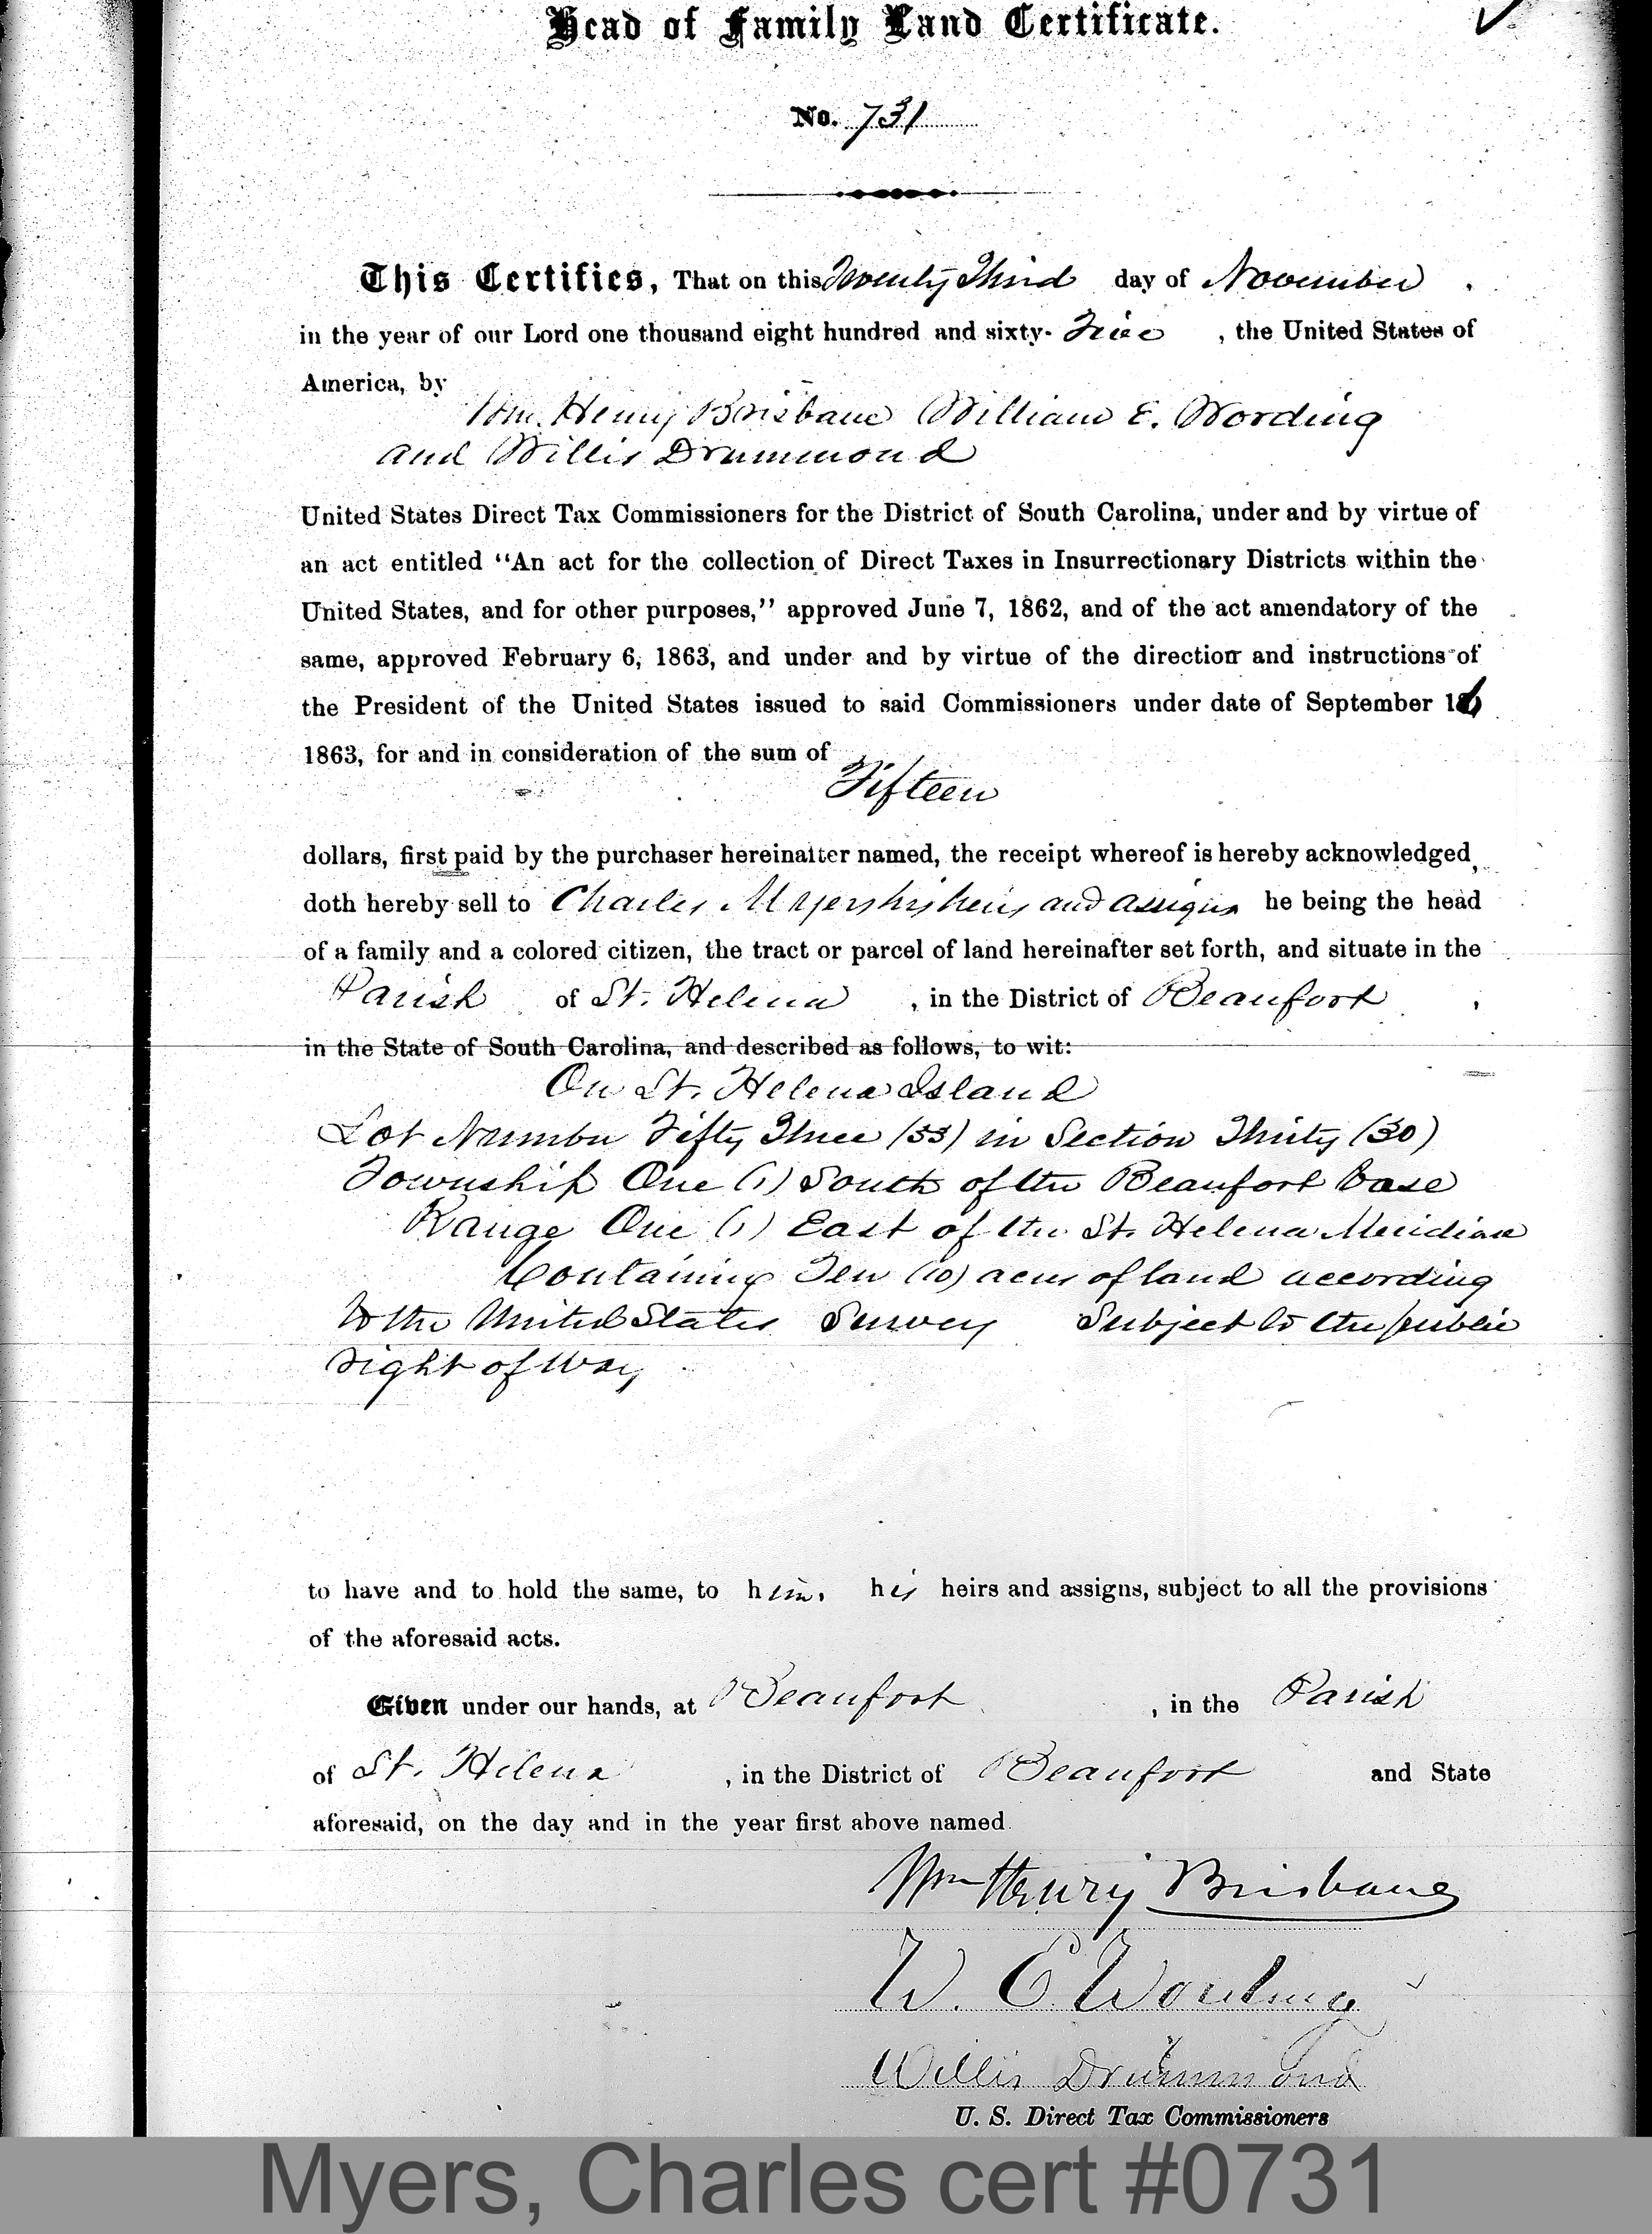 Head of Family Land Certificate.
No. 731
This Certifies, That on this Twenty Third day of November
in the year of our Lord one thousand eight hundred and sixty- Five , the United States of
America, by
Wm. Henry Brisbane William E. Wording
and Willis Drummond
United States Direct Tax Commissioners for the District of South Carolina, under and by virtue of
an act entitled "An act for the collection of Direct Taxes in Insurrectionary Districts within the
United States, and for other purposes," approved June 7, 1862, and of the act amendatory of the
same, approved February 6, 1863, and under and by virtue of the direction and instructions of
the President of the United States issued to said Commissioners under date of September 16
1863, for and in consideration of the sum of
Fifteen
dollars, first paid by the purchaser hereinafter named, the receipt whereof is hereby acknowledged,
doth hereby sell to Charles Myers his heirs and assigns he being the head
of a family and a colored citizen, the tract or parcel of land hereinafter set forth, and situate in the
Parish of St. Helena , in the District of Beaufort ,
in the State of South Carolina, and described as follows, to wit:
On St. Helena Island
Lot Number Fifty Three (53) in Section Thirty (30)
Township One (1) South of the Beaufort base
Range One (1) East of the St. Helena Meridian
Containing Ten (10) acres of land according
to the United States Survey Subject to the public
right of way
to have and to hold the same, to him, his heirs and assigns, subject to all the provisions
of the aforesaid acts.
Given under our hands, at Beaufort , in the Parish
of St. Helena , in the District of Beaufort and State
aforesaid, on the day and in the year first above named.
Wm Henry Brisbane
W. E. Wording
Willis Drummond
U. S. Direct Tax Commissioners
Myers, Charles cert #0731